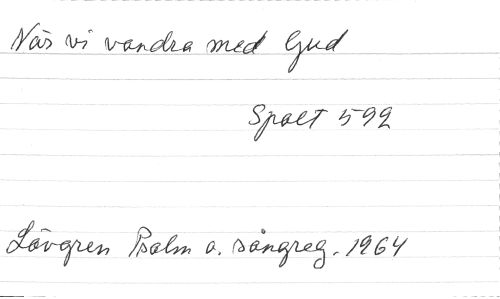 När vi vandra med Gud
Spalt 592
Lövgren Psalm o. sångreg. 1964